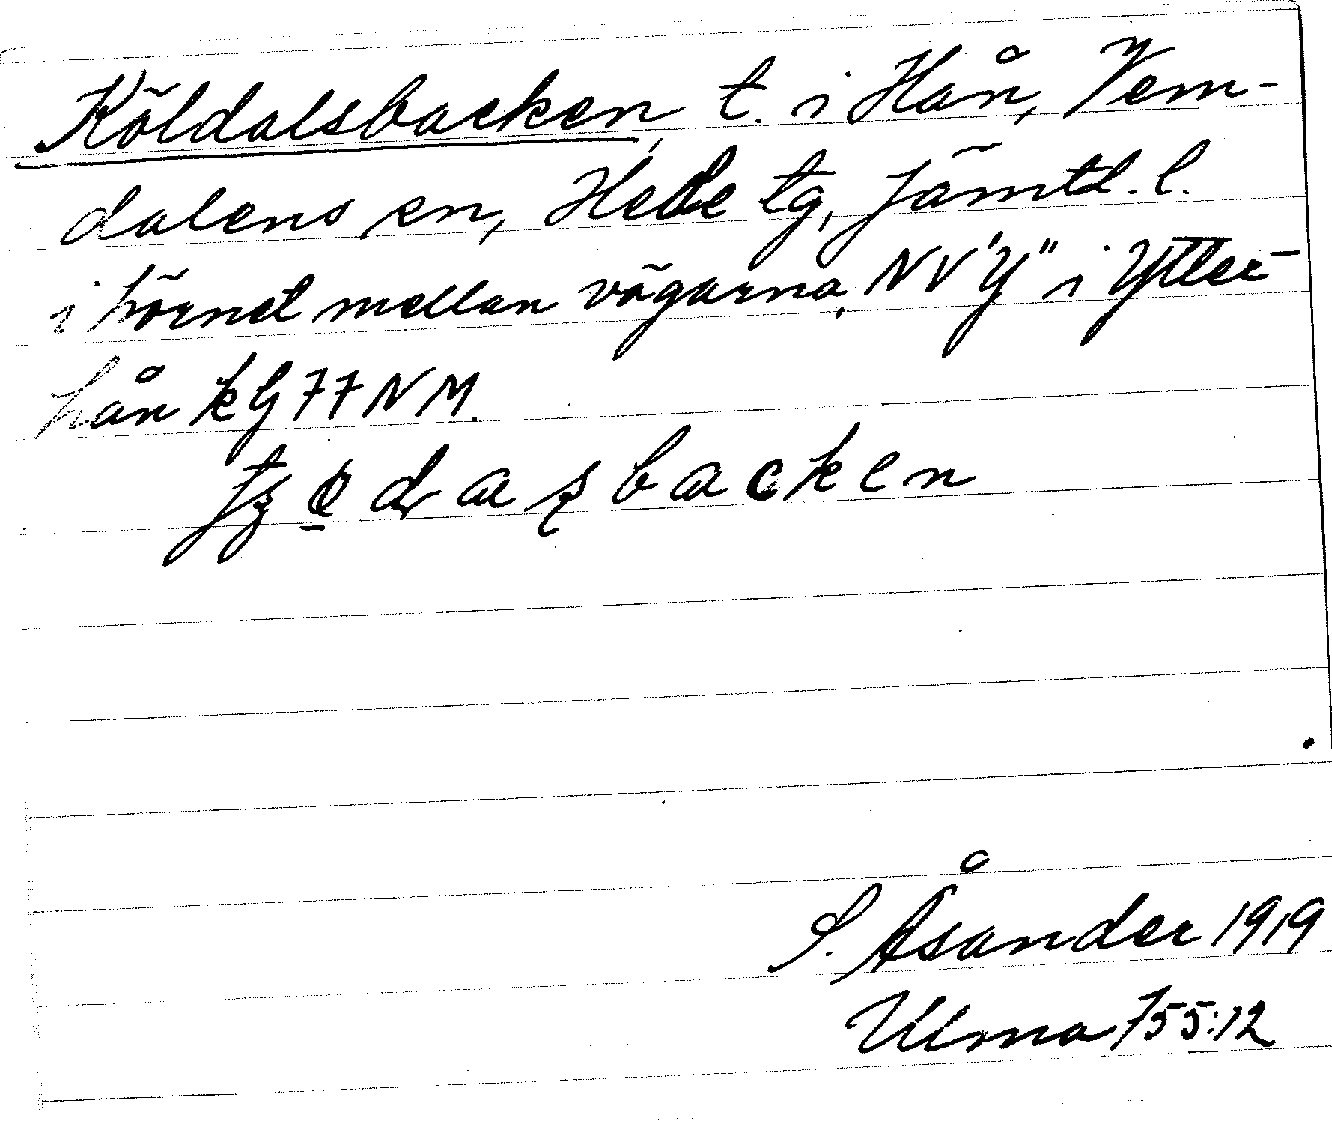 Köldalsbacken, t. i Hån, Vem-
dalens sn, Hede tg, Jämtl. l.
i hörnet mellan vägarna, NV "Y" i Ytter-
hån kG 77 NM.
backen
S. Åsander 1919
Ulma 755:12